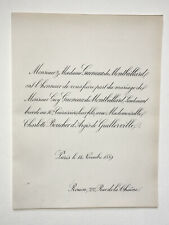 Monsieur & Madame Gueneau de Montbeillard
ont l'honneur de vous faire part du mariage de
Monsieur Guy Gueneau de Montbeillard, Lieutenant
Cuirassiers, avec Mademoiselle
Charlotte Boucher d'Argis de Guillerville.
Paris le 14 Novembre 1889
Rue de la Chaise